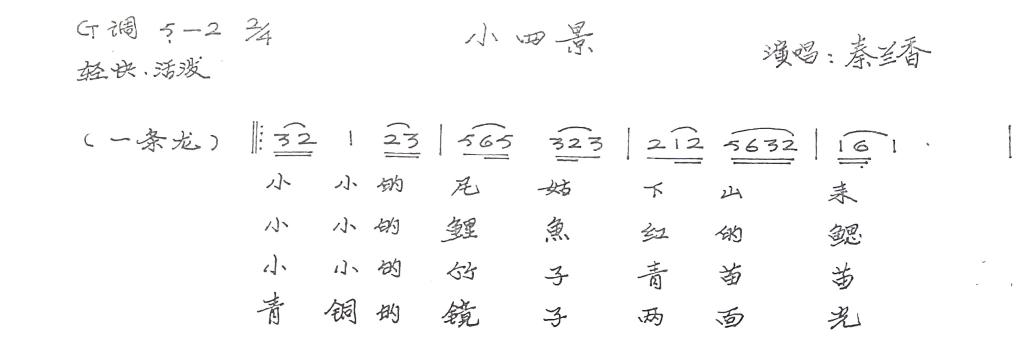 G调 5—2 2/4
小四景
轻快.活泼
演唱：秦兰香
(一条龙) ‖: 32 1 23 | 565 323 | 212 5632 | 161 . |
小 小的 尼 姑 下 山 来
小 小的 鲤 魚 红 的 鳃
小 小的 竹 子 青 苗 苗
青 铜的 镜 子 两 面 光